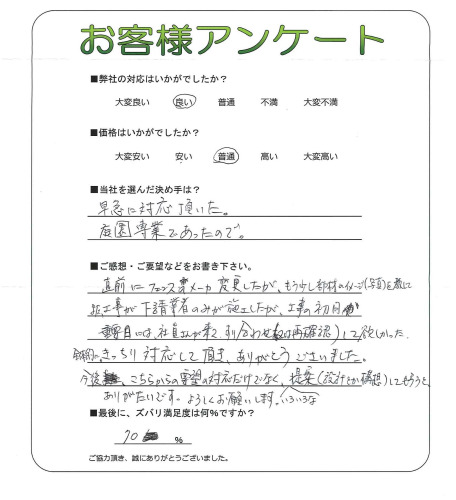 お客様アンケート
■弊社の対応はいかがでしたか？
大変良い 良い 普通 不満 大変不満
■価格はいかがでしたか？
大変安い 安い 普通 高い 大変高い
■当社を選んだ決め手は？
早急に対応頂いた。
庭園専業であったので。
■ご感想・ご要望などをお書き下さい。
直前にフェンスメーカ変更したが、もう少し部材のイメージ(写真)を
工事が下請業者のみが施工したが、工事の初
には、社員さんが来て、すり合わせ(又は再確認)して欲しかった。
きっちり対応して頂き、ありがとうございました。
今後、こちらからの要望の対応だけでなく、提案(設計とか構想)してもらうと、
ありがたいです。よろしくお願いします。いろいろな
■最後に、ズバリ満足度は何%ですか？
70 %
ご協力頂き、誠にありがとうございました。